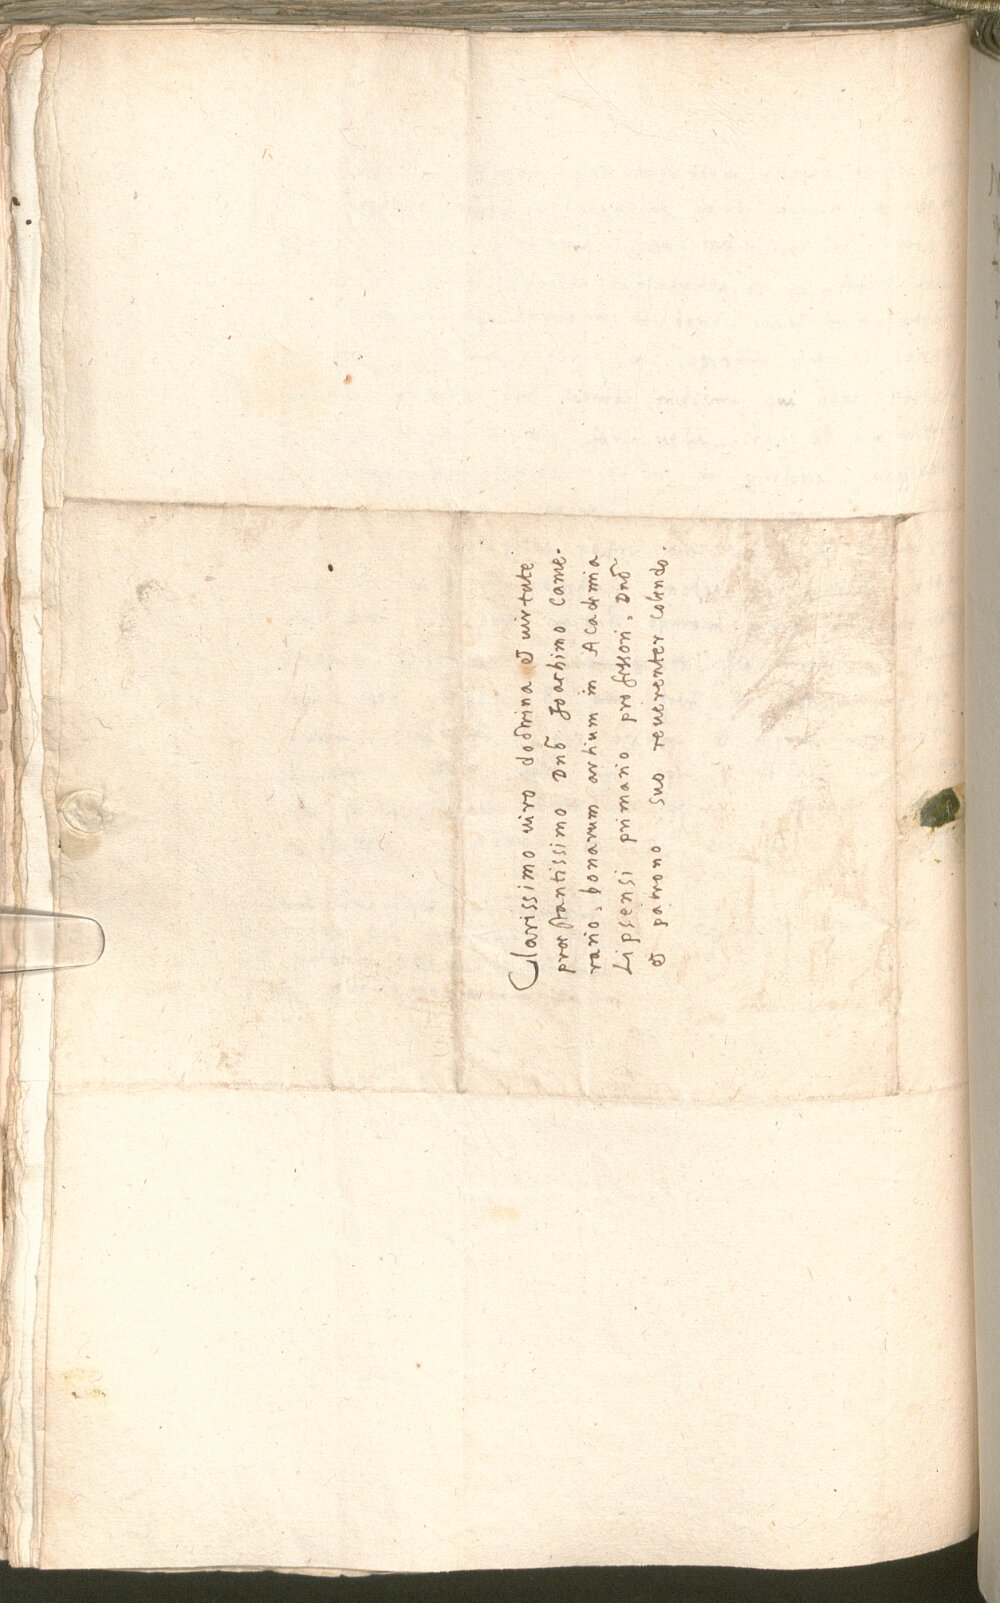 Clarissimo uiro doctrina & uirtute
præstantissimo Dnō Joachimo Came-
rario, bonarum artium in Academia
Lipsensi primario professori, Dnō
& patrono suo reuerenter colendo.